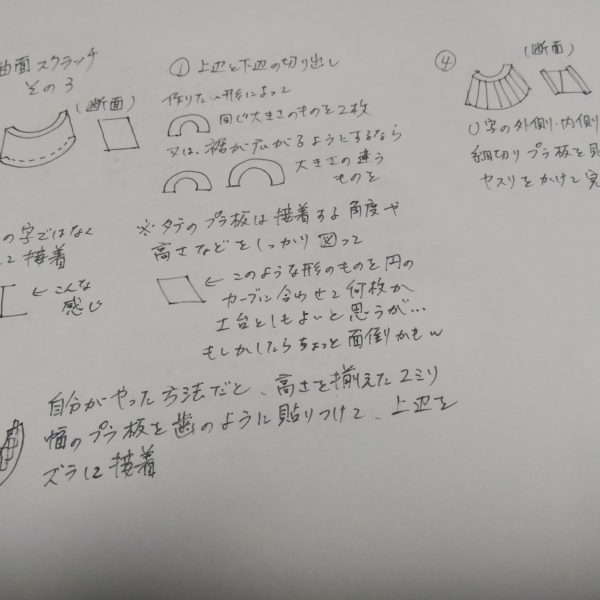 曲面スクラッチ
その3
(断面)
① 上辺と下辺の切り出し
作りたい形によって
同じ大きさのものを2枚
又は、裾が広がるようにするなら
大きさの違う
ものを
④
(断面)
U字の外側・内側
細切りプラ板を貼
ヤスリをかけて完
の字ではなく
して接着
← こんな
感じ
※ タテのプラ板は接着する角度や
高さなどをしっかり図って
← このような形のものを円の
カーブに合わせて何枚か
土台としてもよいと思うが…
もしかしたらちょっと面倒かもw
自分がやった方法だと、高さを揃えた2ミリ
幅のプラ板を歯のように貼りつけて、上辺を
ズラして接着